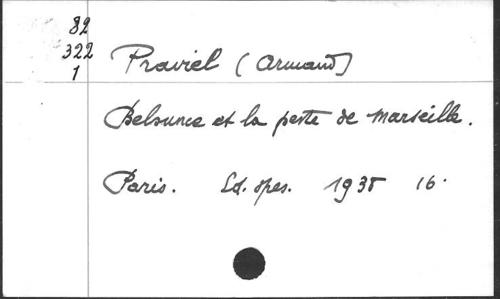 82
322
1
Praviel (Armand)
Belsunce et la peste de Marseille.
Paris. Ed. Spes. 1938 16.